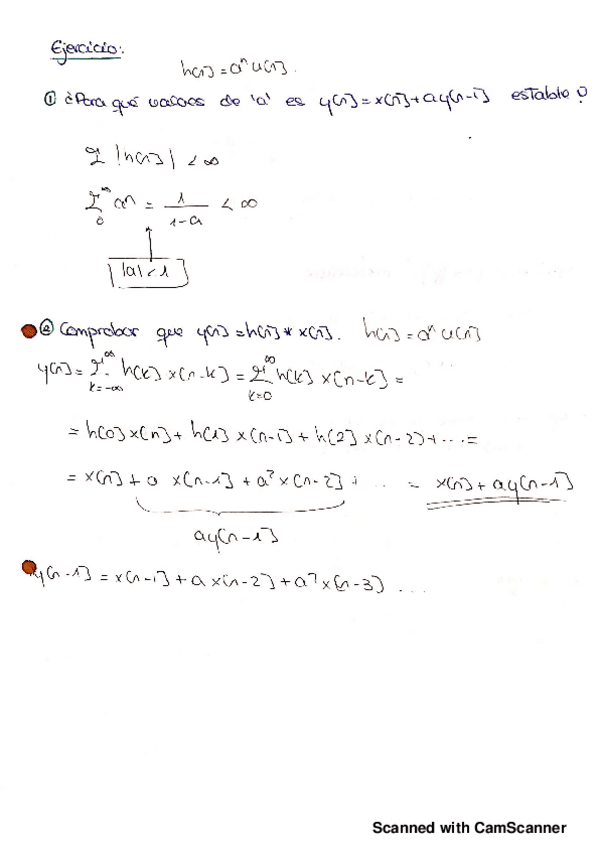 Ejercicio:
h[n] = aⁿ u[n].
① ¿Para qué valores de 'a' es y[n] = x[n] + ay[n-1] estable?
Σ |h[n]| < ∞
Σ₀^∞ aⁿ = 1/(1-a) < ∞
|a| < 1
② Comprobar que y[n] = h[n] * x[n]. h[n] = aⁿ u[n]
y[n] = Σ_{k=-∞}^∞ h[k] x[n-k] = Σ_{k=0}^∞ h[k] x[n-k] =
= h[0] x[n] + h[1] x[n-1] + h[2] x[n-2] + ... =
= x[n] + a x[n-1] + a² x[n-2] + ... = x[n] + ay[n-1]
ay[n-1]
y[n-1] = x[n-1] + a x[n-2] + a² x[n-3] ...
Scanned with CamScanner